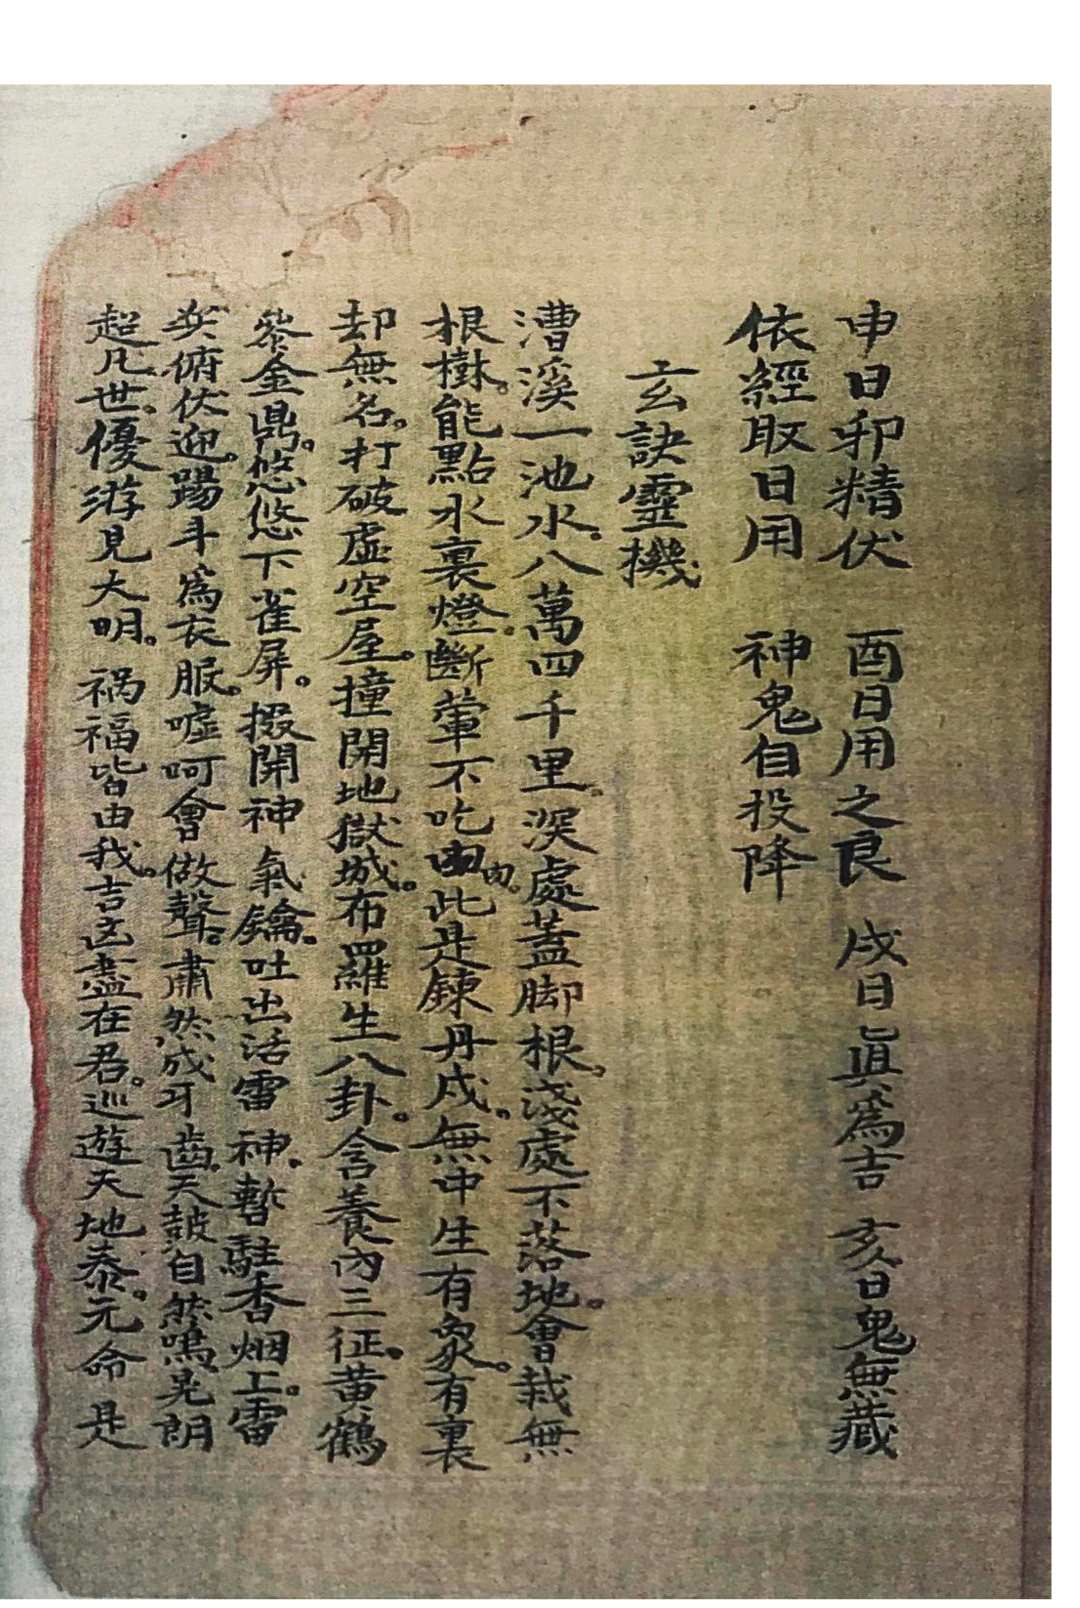 申日卯精伏　酉日用之良　戌日眞為吉　亥日鬼無藏
依經取日用　神鬼自投降
玄訣靈機
漕溪一池水。八萬四千里。深處蓋脚根。淺處不落地。會栽無
根樹。能點水裏燈。斷葷不吃肉。此是鍊丹成。無中生有衆。有裏
却無名。打破虛空屋。撞開地獄城。布羅生八卦。含養內三征。黃鶴
参金鼎。悠悠下雀屏。掇開神氣鑰。吐出活雷神。暫駐香烟上。雷
兵俯伏迎。踢斗為衣服。噓呵會做聲。肅然成牙齒。天鼓自然鳴。晃朗
超凡世。優游見大明。禍福皆由我。吉凶盡在君。巡遊天地泰。元命是